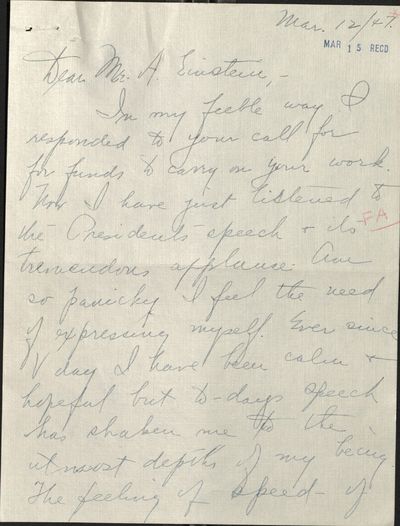 Mar. 12/47.
MAR 15 RECD
Dear Mr. A. Einstein,-
In my feeble way I
responded to your call for
for funds to carry on your work.
Now I have just listened to
the Presidents speech & its
FA
tremendous applause. Am
so panicky I feel the need
of expressing myself. Ever since
V day I have been calm &
hopeful but to-days speech
has shaken me to the
utmost depths of my being.
The feeling of speed - of